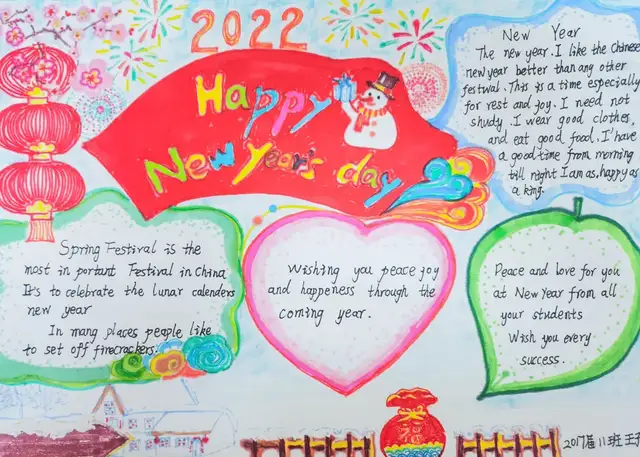 2022
Happy
New year's day
New Year
The new year. I like the Chinese
new year better than any other
festival. This is a time especially
for rest and joy. I need not
study. I wear good clothes,
and eat good food. I have
a good time from morning
till night I am as happy as
a king.
Spring Festival is the
most in portant Festival in China
It's to celebrate the lunar calenders
new year
In many places people like
to set off firecrackers.
Wishing you peace joy
and happeness through the
coming year.
Peace and love for you
at New Year from all
your students
Wish you every
success.
2017届11班王